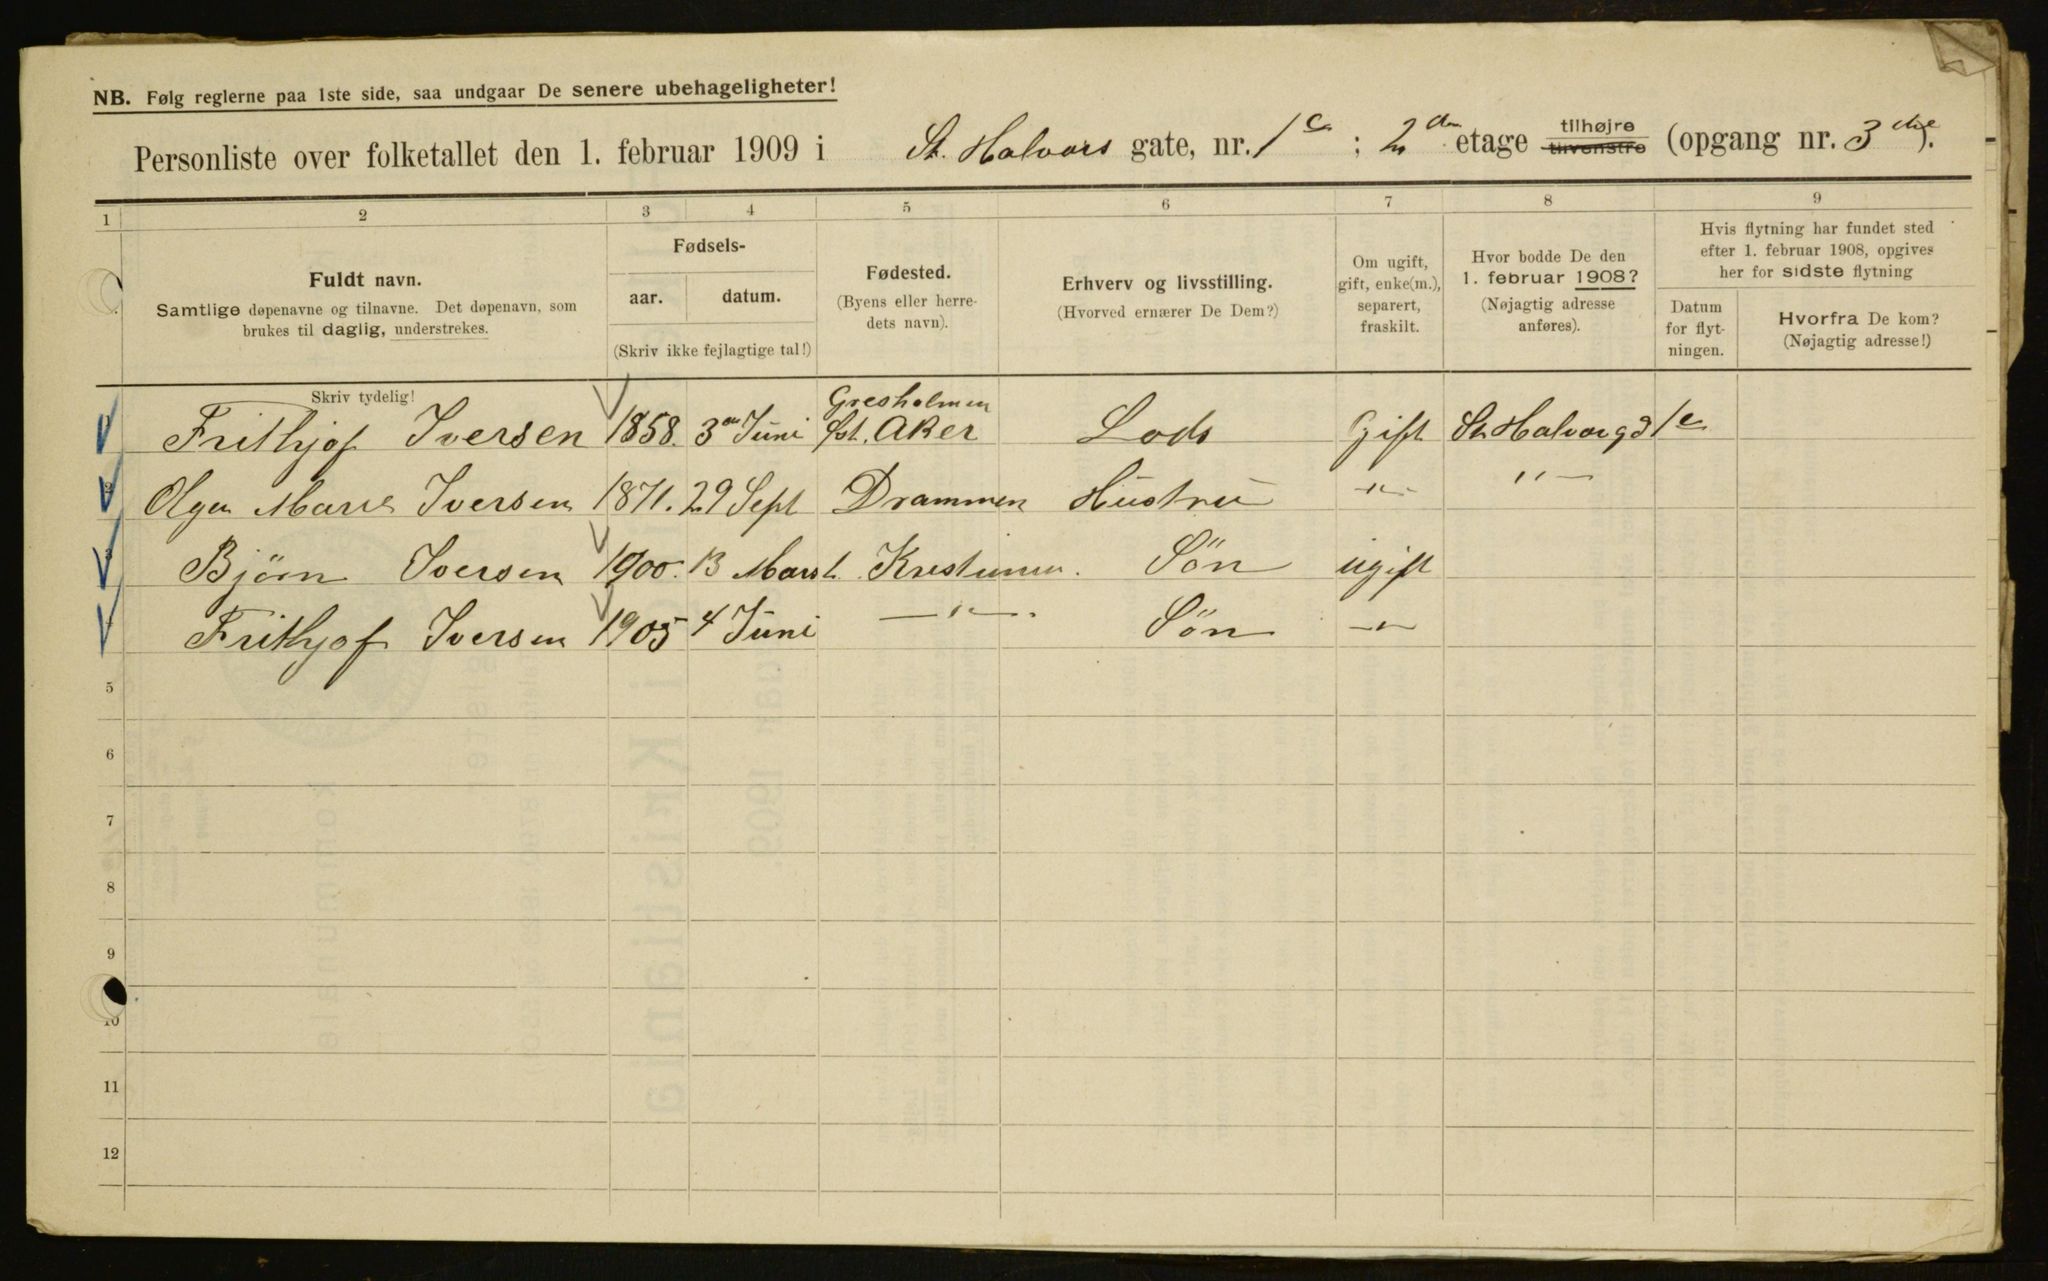 NB. Følg reglerne paa 1ste side, saa undgaar De senere ubehageligheter!
Personliste over folketallet den 1. februar 1909 i St. Halvors gate, nr. 1c ; 2den etage tilhøjre tilvenstre (opgang nr. 3die).
1 2 3 4 5 6 7 8 9
Fuldt navn.
Samtlige døpenavne og tilnavne. Det døpenavn, som
brukes til daglig, understrekes.
Fødsels-
aar. datum.
(Skriv ikke fejlagtige tal!)
Fødested.
(Byens eller herre-
dets navn).
Erhverv og livsstilling.
(Hvorved ernærer De Dem?)
Om ugift,
gift, enke(m.),
separert,
fraskilt.
Hvor bodde De den
1. februar 1908?
(Nøjagtig adresse
anføres).
Hvis flytning har fundet sted
efter 1. februar 1908, opgives
her for sidste flytning
Datum
for flyt-
ningen.
Hvorfra De kom?
(Nøjagtig adresse!)
Skriv tydelig!
Gresholmen
1 Frithjof Iversen 1858. 3 Juni Aker Lods Gift St Halvorgd 1c
2 Olga Marie Iversen 1871. 29 Sept Drammen Hustru -"- "-
3 Bjørn Iversen 1900. 13 Mars Kristiania. Søn ugift
4 Frithjof Iversen 1905 4 Juni -"- Søn -"-
5
6
7
8
9
10
11
12